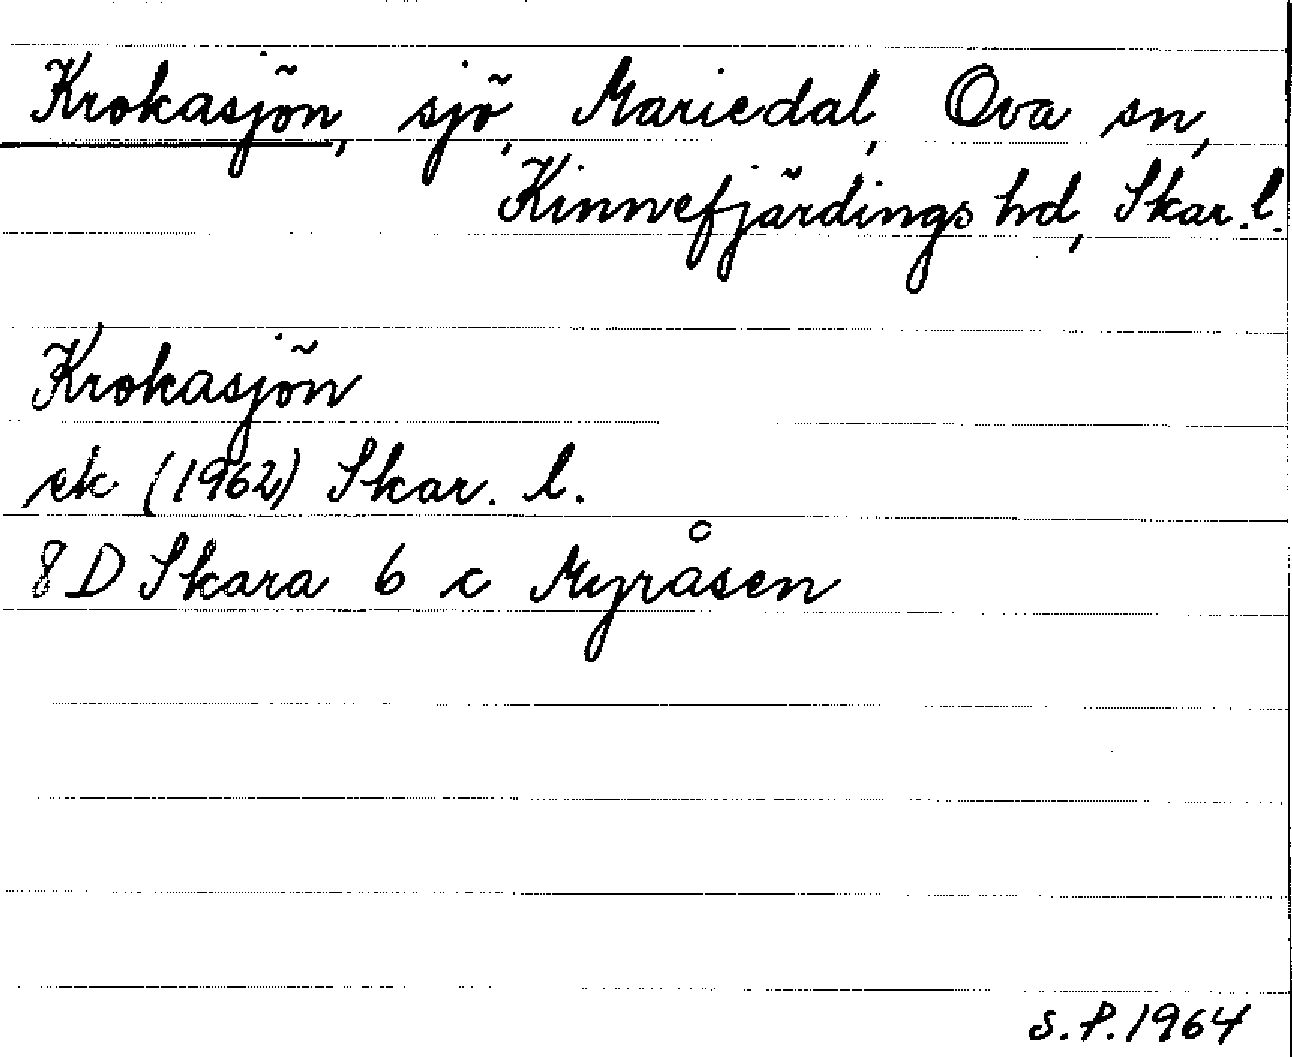 Krokasjön, sjö, Mariedal, Ova sn,
Kinnefjärdings hd, Skar. l.
Krokasjön
ek (1962) Skar. l.
8 D Skara 6 c Myråsen
S.P.1964